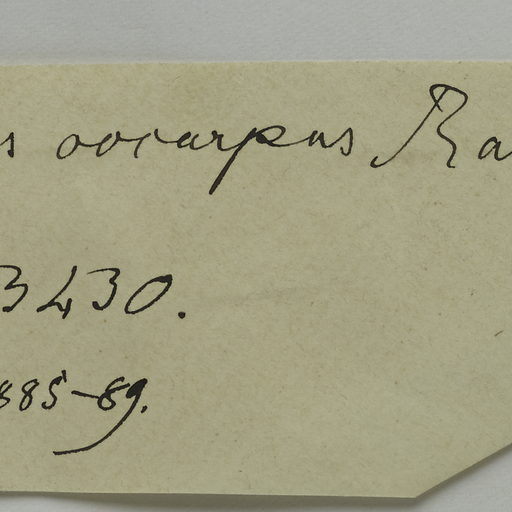 s oocarpus Ra
3430.
885-89.